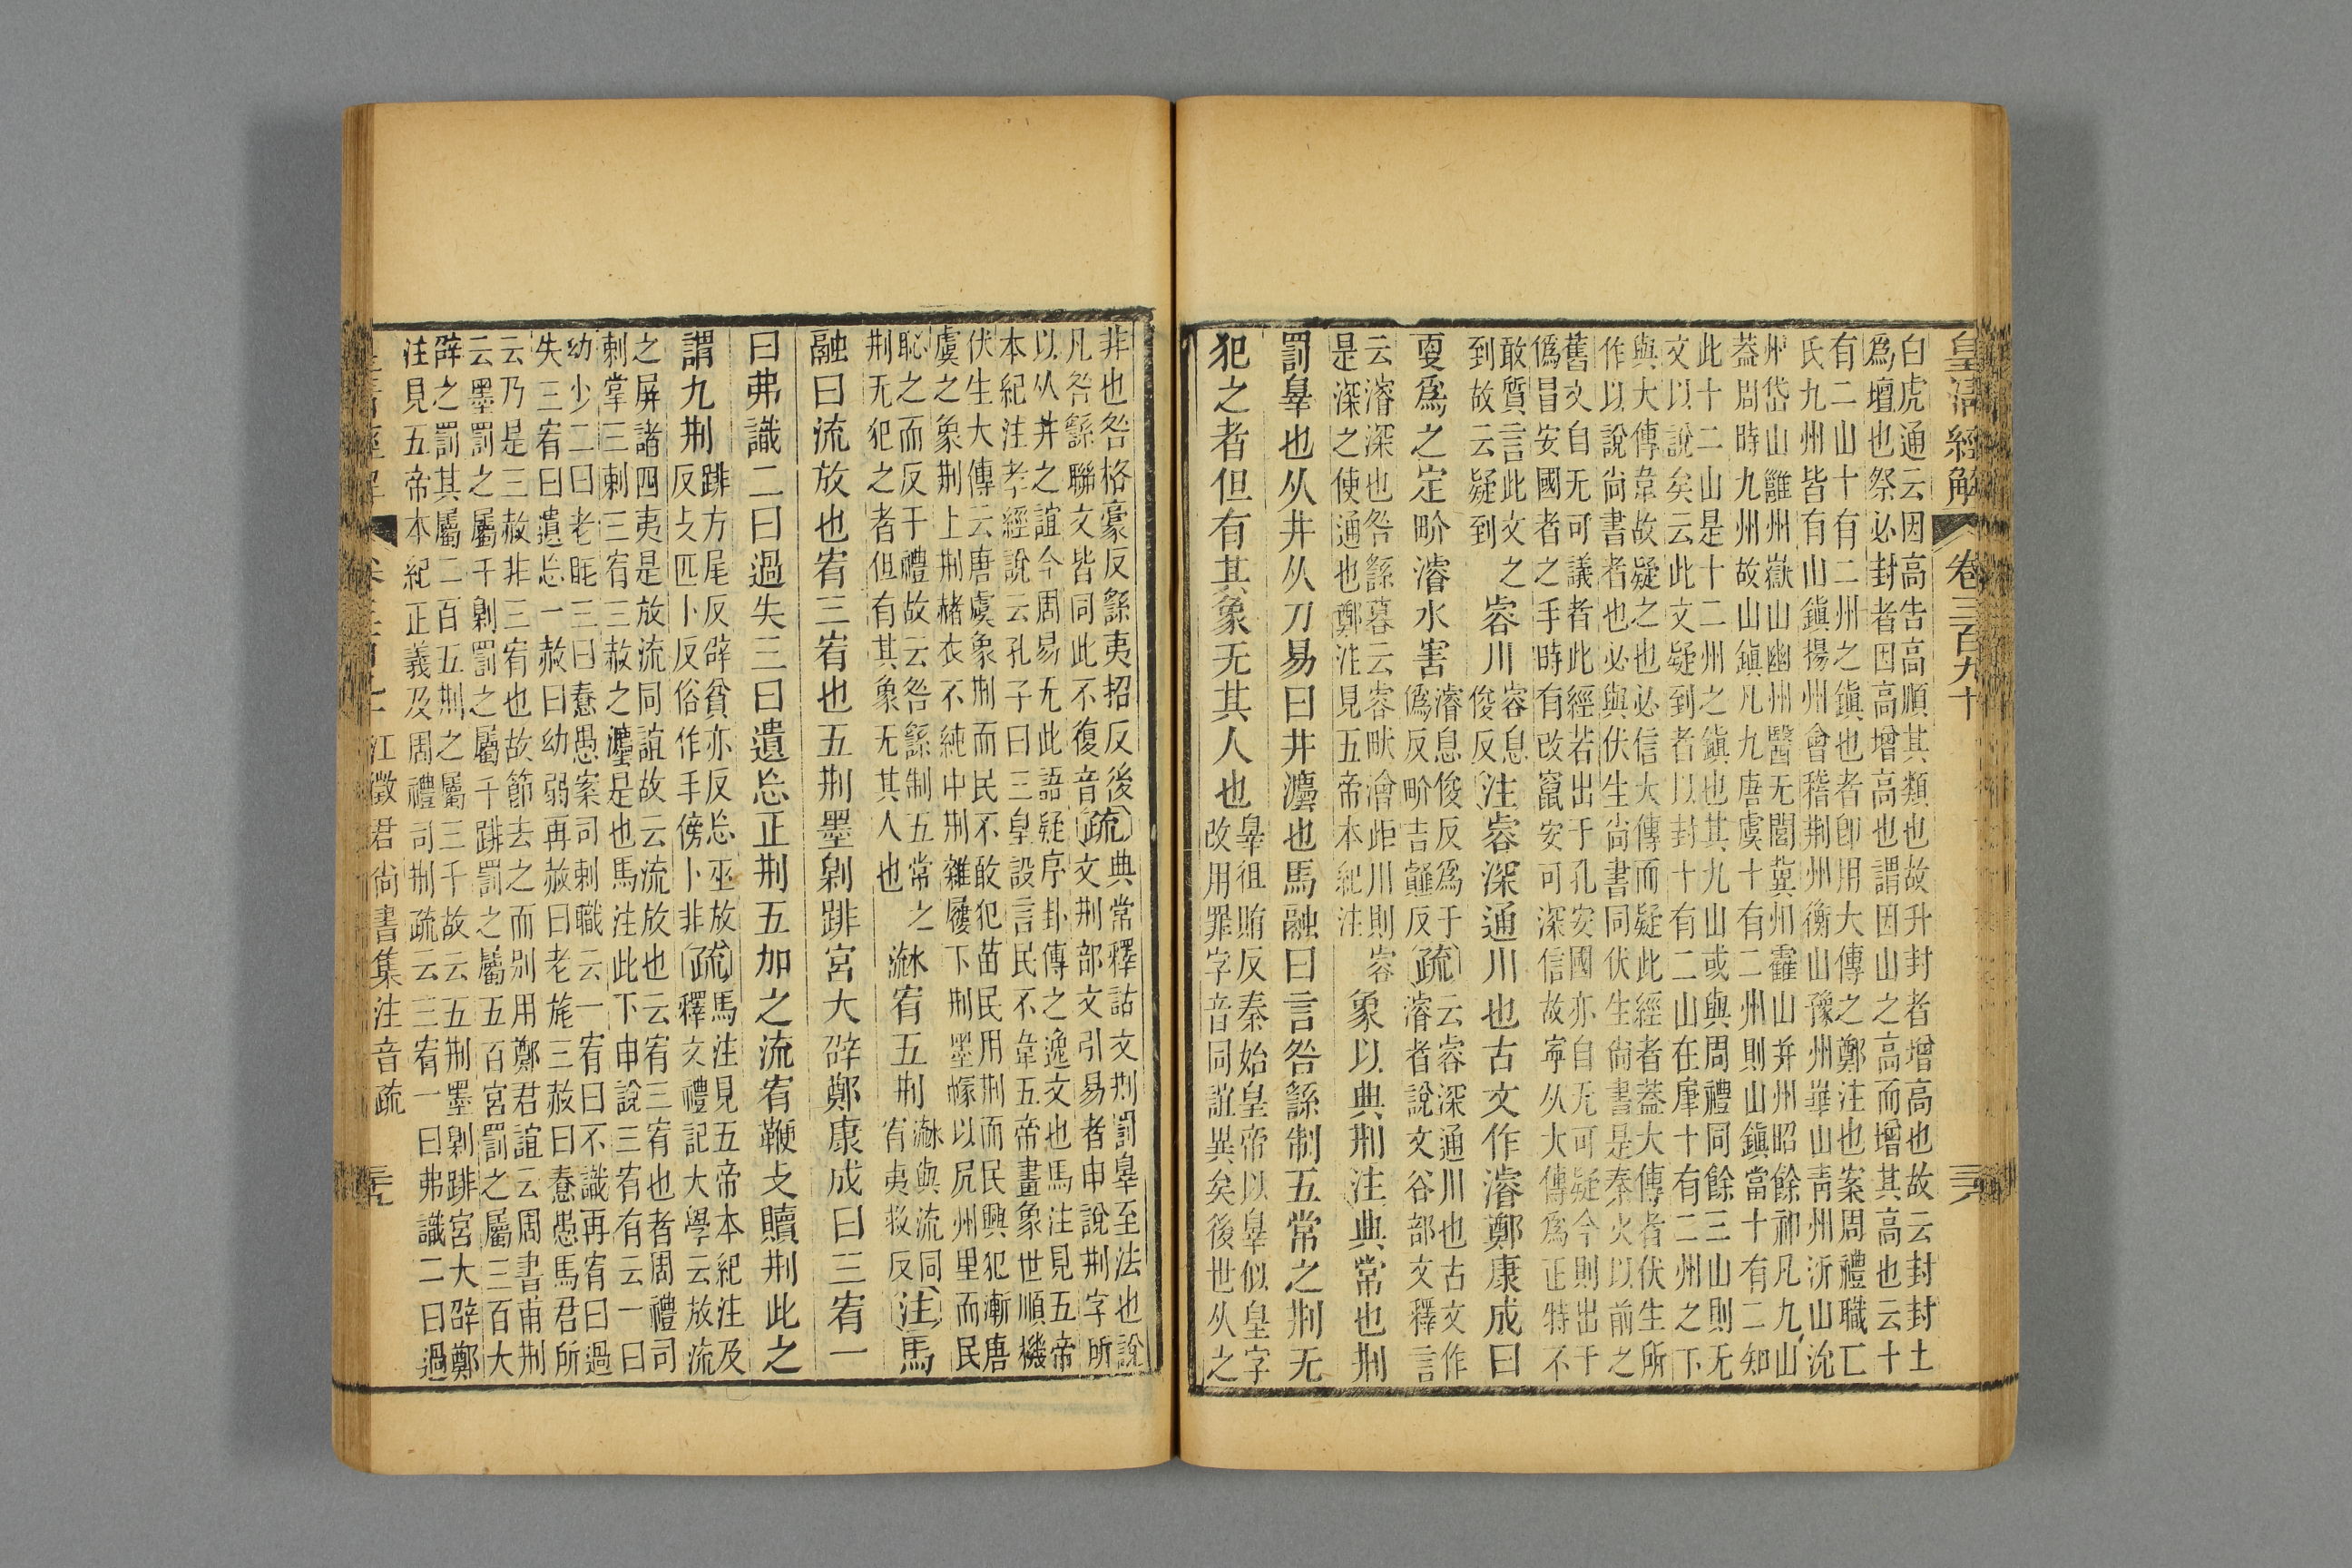 皇清經解 卷三百九十
白虎通云因高告高順其類也故升封者增高也故云封封土
爲壇也祭必封者因高增高也謂因山之高而增其高也云十
有二山十有二州之鎭也者卽用大傳之鄭注也案周禮職匸
氏九州皆有山鎭揚州會稽荆州衡山豫州崋山靑州沂山沇
州岱山雝州嶽山幽州醫无閭冀州霍山幷州昭餘祁凡九山
蓋周時九州故山鎭凡九唐虞十有二州則山鎭當十有二知
此十二山是十二州之鎭也其九山或與周禮同餘三山則无
文以說矣云此文疑到者以封十有二山在肁十有二州之下
與大傳韋故疑之也必信大傳而疑此經者蓋大傳者伏生所
作以說尙書者也必與伏生尙書同伏生尙書是秦火以前之
舊文自无可議者此經若出于孔安國亦自无可疑今則出于
僞冒安國者之手時有改竄安可深信故寧从大傳爲正特不
敢質言此文之
到故云疑到
㕡川
㕡息
俊反
注㕡深通川也古文作濬鄭康成曰
㪅爲之定畍濬水害
濬息俊反爲于
僞反畍吉䜌反
疏
云㕡深通川也古文作
濬者說文谷部文釋言
云濬深也咎繇暮云㕡畎澮歫川則㕡
是深之使通也鄭注見五帝本紀注
象以典㓝注典常也㓝
罰辠也从井从刀易曰井灋也馬融曰言咎繇制五常之㓝无
犯之者但有其象无其人也
辠徂賄反秦始皇帝以辠似皇字
改用罪字音同誼異矣後世从之
非也咎格豪反繇夷招反後
凡咎繇聯文皆同此不復音
疏
典常釋詁文㓝罰辠至法也說
文㓝部文引易者申說㓝字所
以从井之誼今周易无此語疑序卦傳之逸文也馬注見五帝
本紀注孝經說云孔子曰三皇設言民不韋五帝畫象世順機
伏生大傳云唐虞象㓝而民不敢犯苗民用㓝而民興犯漸唐
虞之象㓝上㓝赭衣不純中㓝雜屨下㓝墨幪以凥州里而民
恥之而反于禮故云咎繇制五常之
㓝无犯之者但有其象无其人也
㵗宥五㓝
㵗與流同
宥夷救反
注馬
融曰流放也宥三宥也五㓝墨劓䠊宮大辟鄭康成曰三宥一
曰弗識二曰過失三曰遺忘正㓝五加之流宥鞭攴贖㓝此之
謂九㓝
䠊方尾反辟貧亦反忘巫放
反攴匹卜反俗作手傍卜非
疏
馬注見五帝本紀注及
釋文禮記大學云放流
之屏諸四夷是放流同誼故云流放也云宥三宥也者周禮司
刺掌三刺三宥三赦之灋是也馬注此下申說三宥有云一曰
幼少二曰老眊三曰憃愚案司刺職云一宥曰不識再宥曰過
失三宥曰遺忘一赦曰幼弱再赦曰老旄三赦曰憃愚馬君所
云乃是三赦非三宥也故節去之而別用鄭君誼云周書甫㓝
云墨罰之屬千劓罰之屬千䠊罰之屬五百宮罰之屬三百大
辟之罰其屬二百五㓝之屬三千故云五㓝墨劓䠊宮大辟鄭
注見五帝本紀正義及周禮司㓝疏云三宥一曰弗識二曰過
江徵君尙書集注音疏